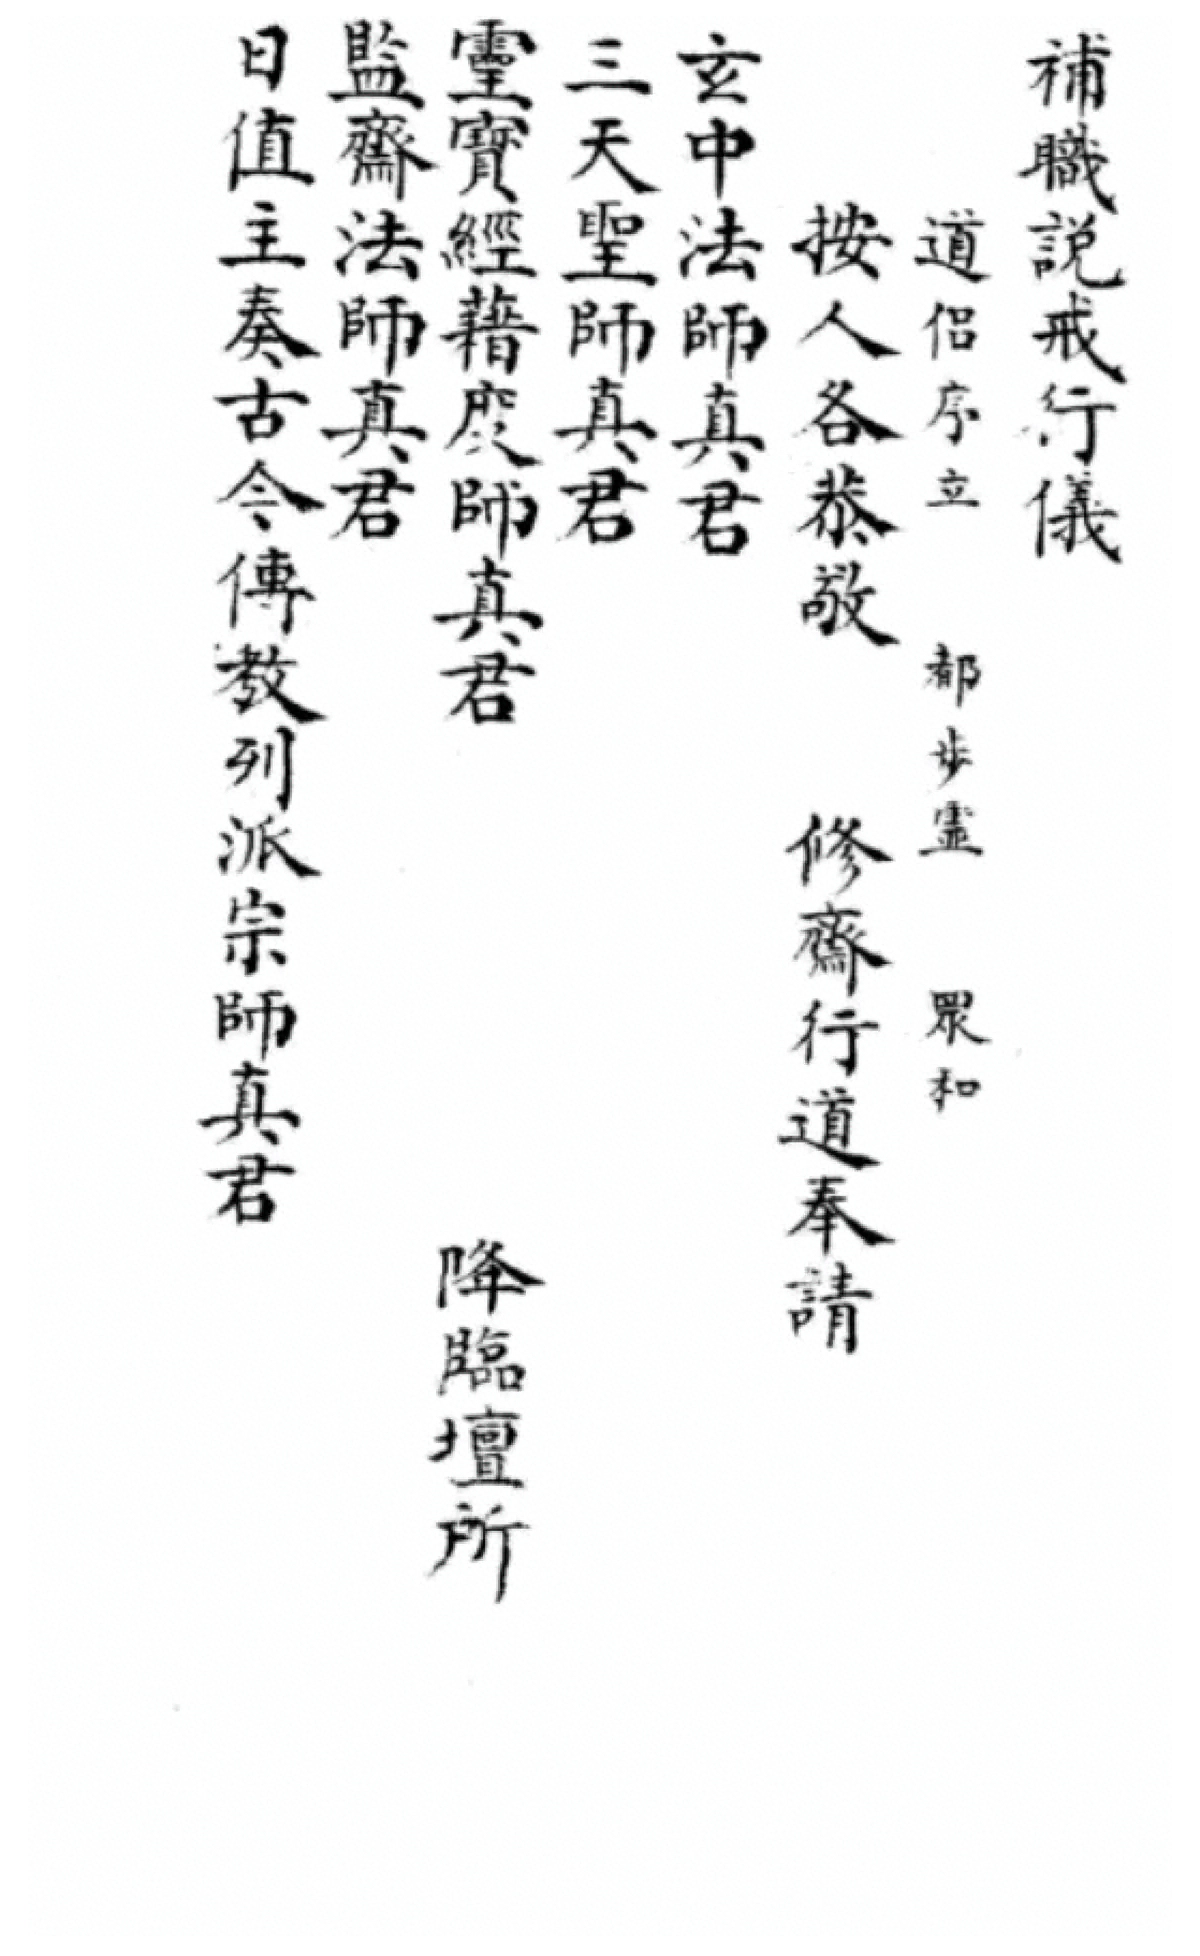 補職説戒行儀
道侣序立 都步灵 眾和
按人各恭敬 修齋行道奉請
玄中法師真君
三天聖師真君
靈寶經藉度師真君 降臨壇所
監齋法師真君
日值主奏古今傳教列派宗師真君